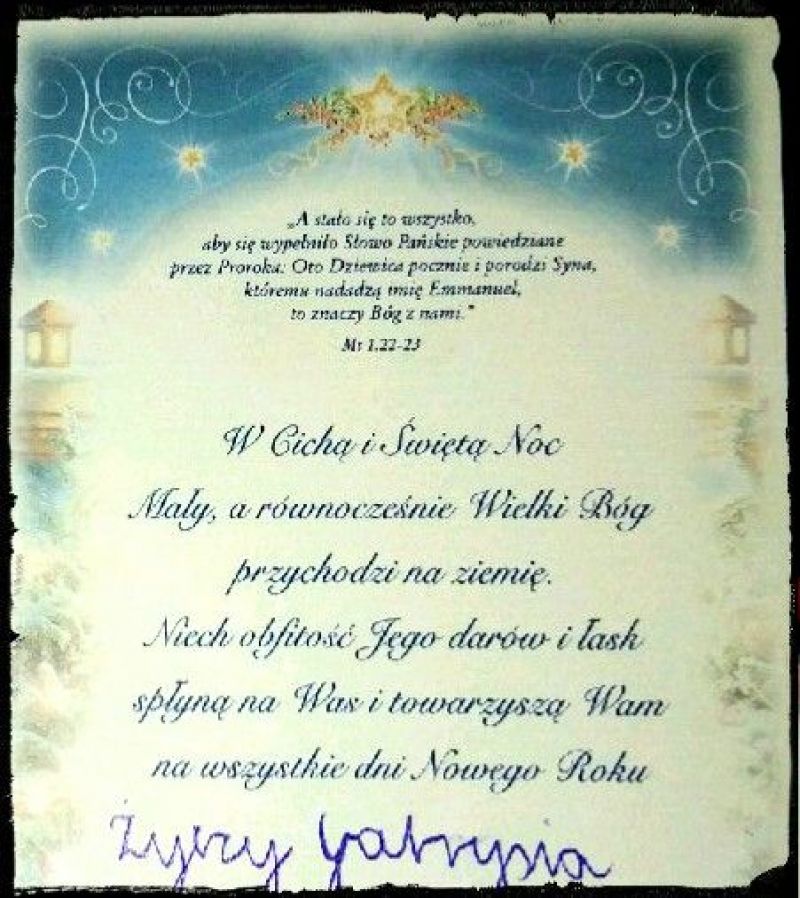 „A stało się to wszystko,
aby się wypełniło Słowo Pańskie powiedziane
przez Proroka: Oto Dziewica pocznie i porodzi Syna,
któremu nadadzą imię Emmanuel,
to znaczy Bóg z nami."
Mt 1,22-23
W Cichą i Świętą Noc
Mały, a równocześnie Wielki Bóg
przychodzi na ziemię.
Niech obfitość Jego darów i łask
spłyną na Was i towarzyszą Wam
na wszystkie dni Nowego Roku
Życzy Gabrysia